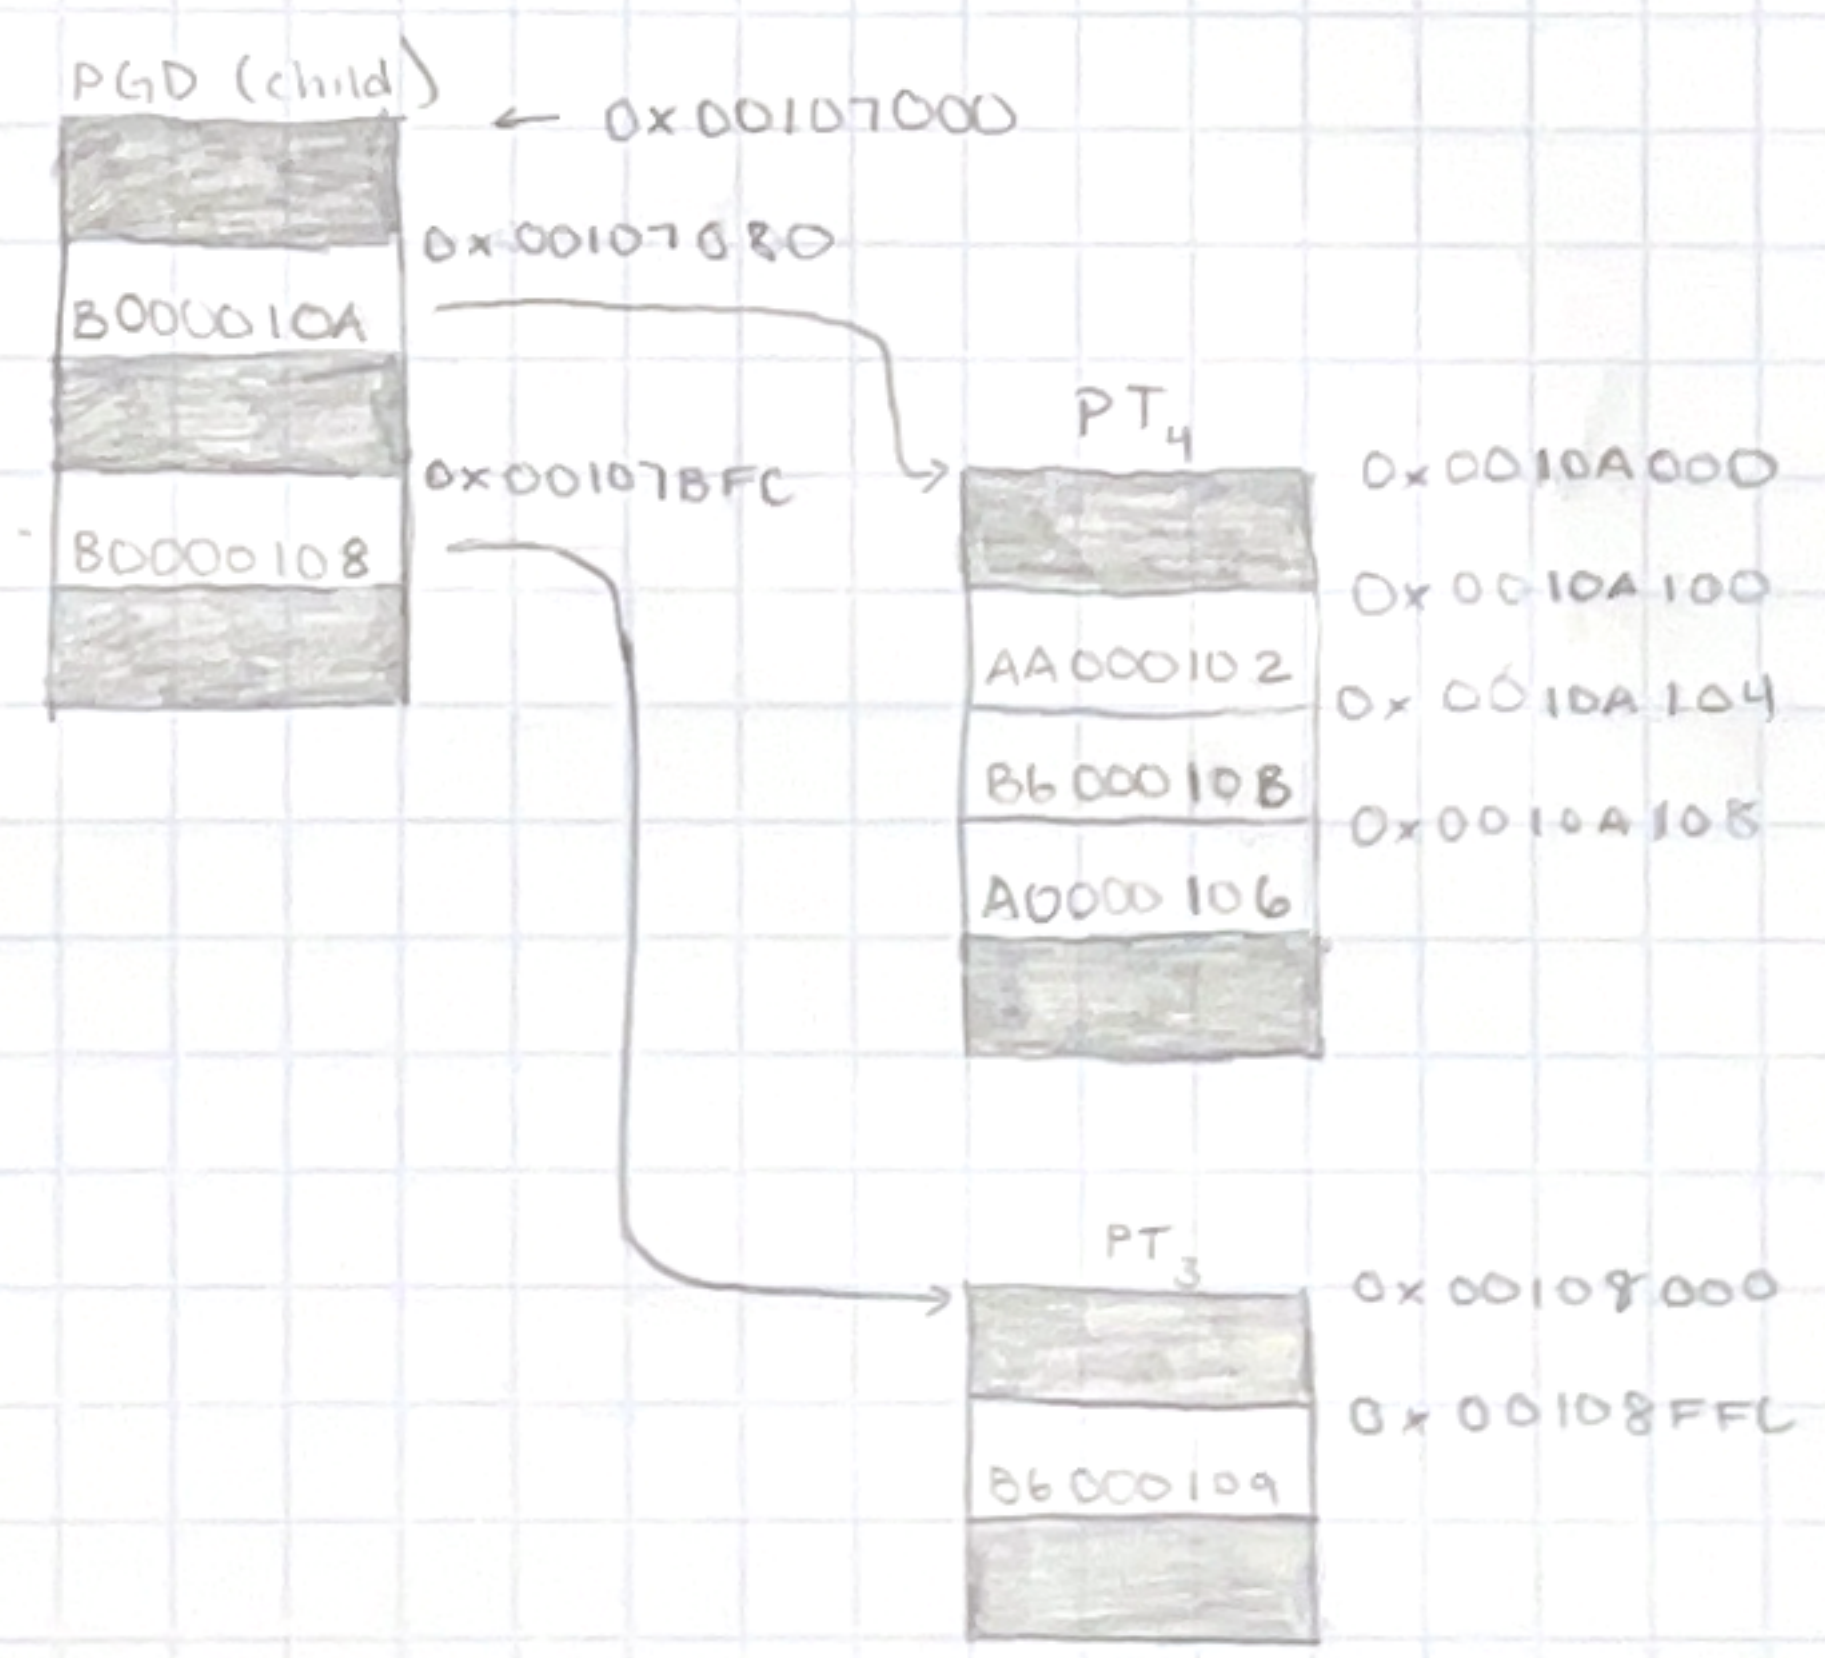 PGD (child)
← 0x00107000
0x00107080
B000010A
0x00107BFC
B0000108
PT4
0x0010A000
0x0010A100
AA000102
0x0010A104
B600010B
0x0010A108
A0000106
PT3
0x00108000
0x00108FFC
B6000109